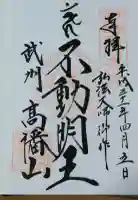 奉拝
平成三十一年四月五日
弘法大師御作
不動明王
武州
高幡山